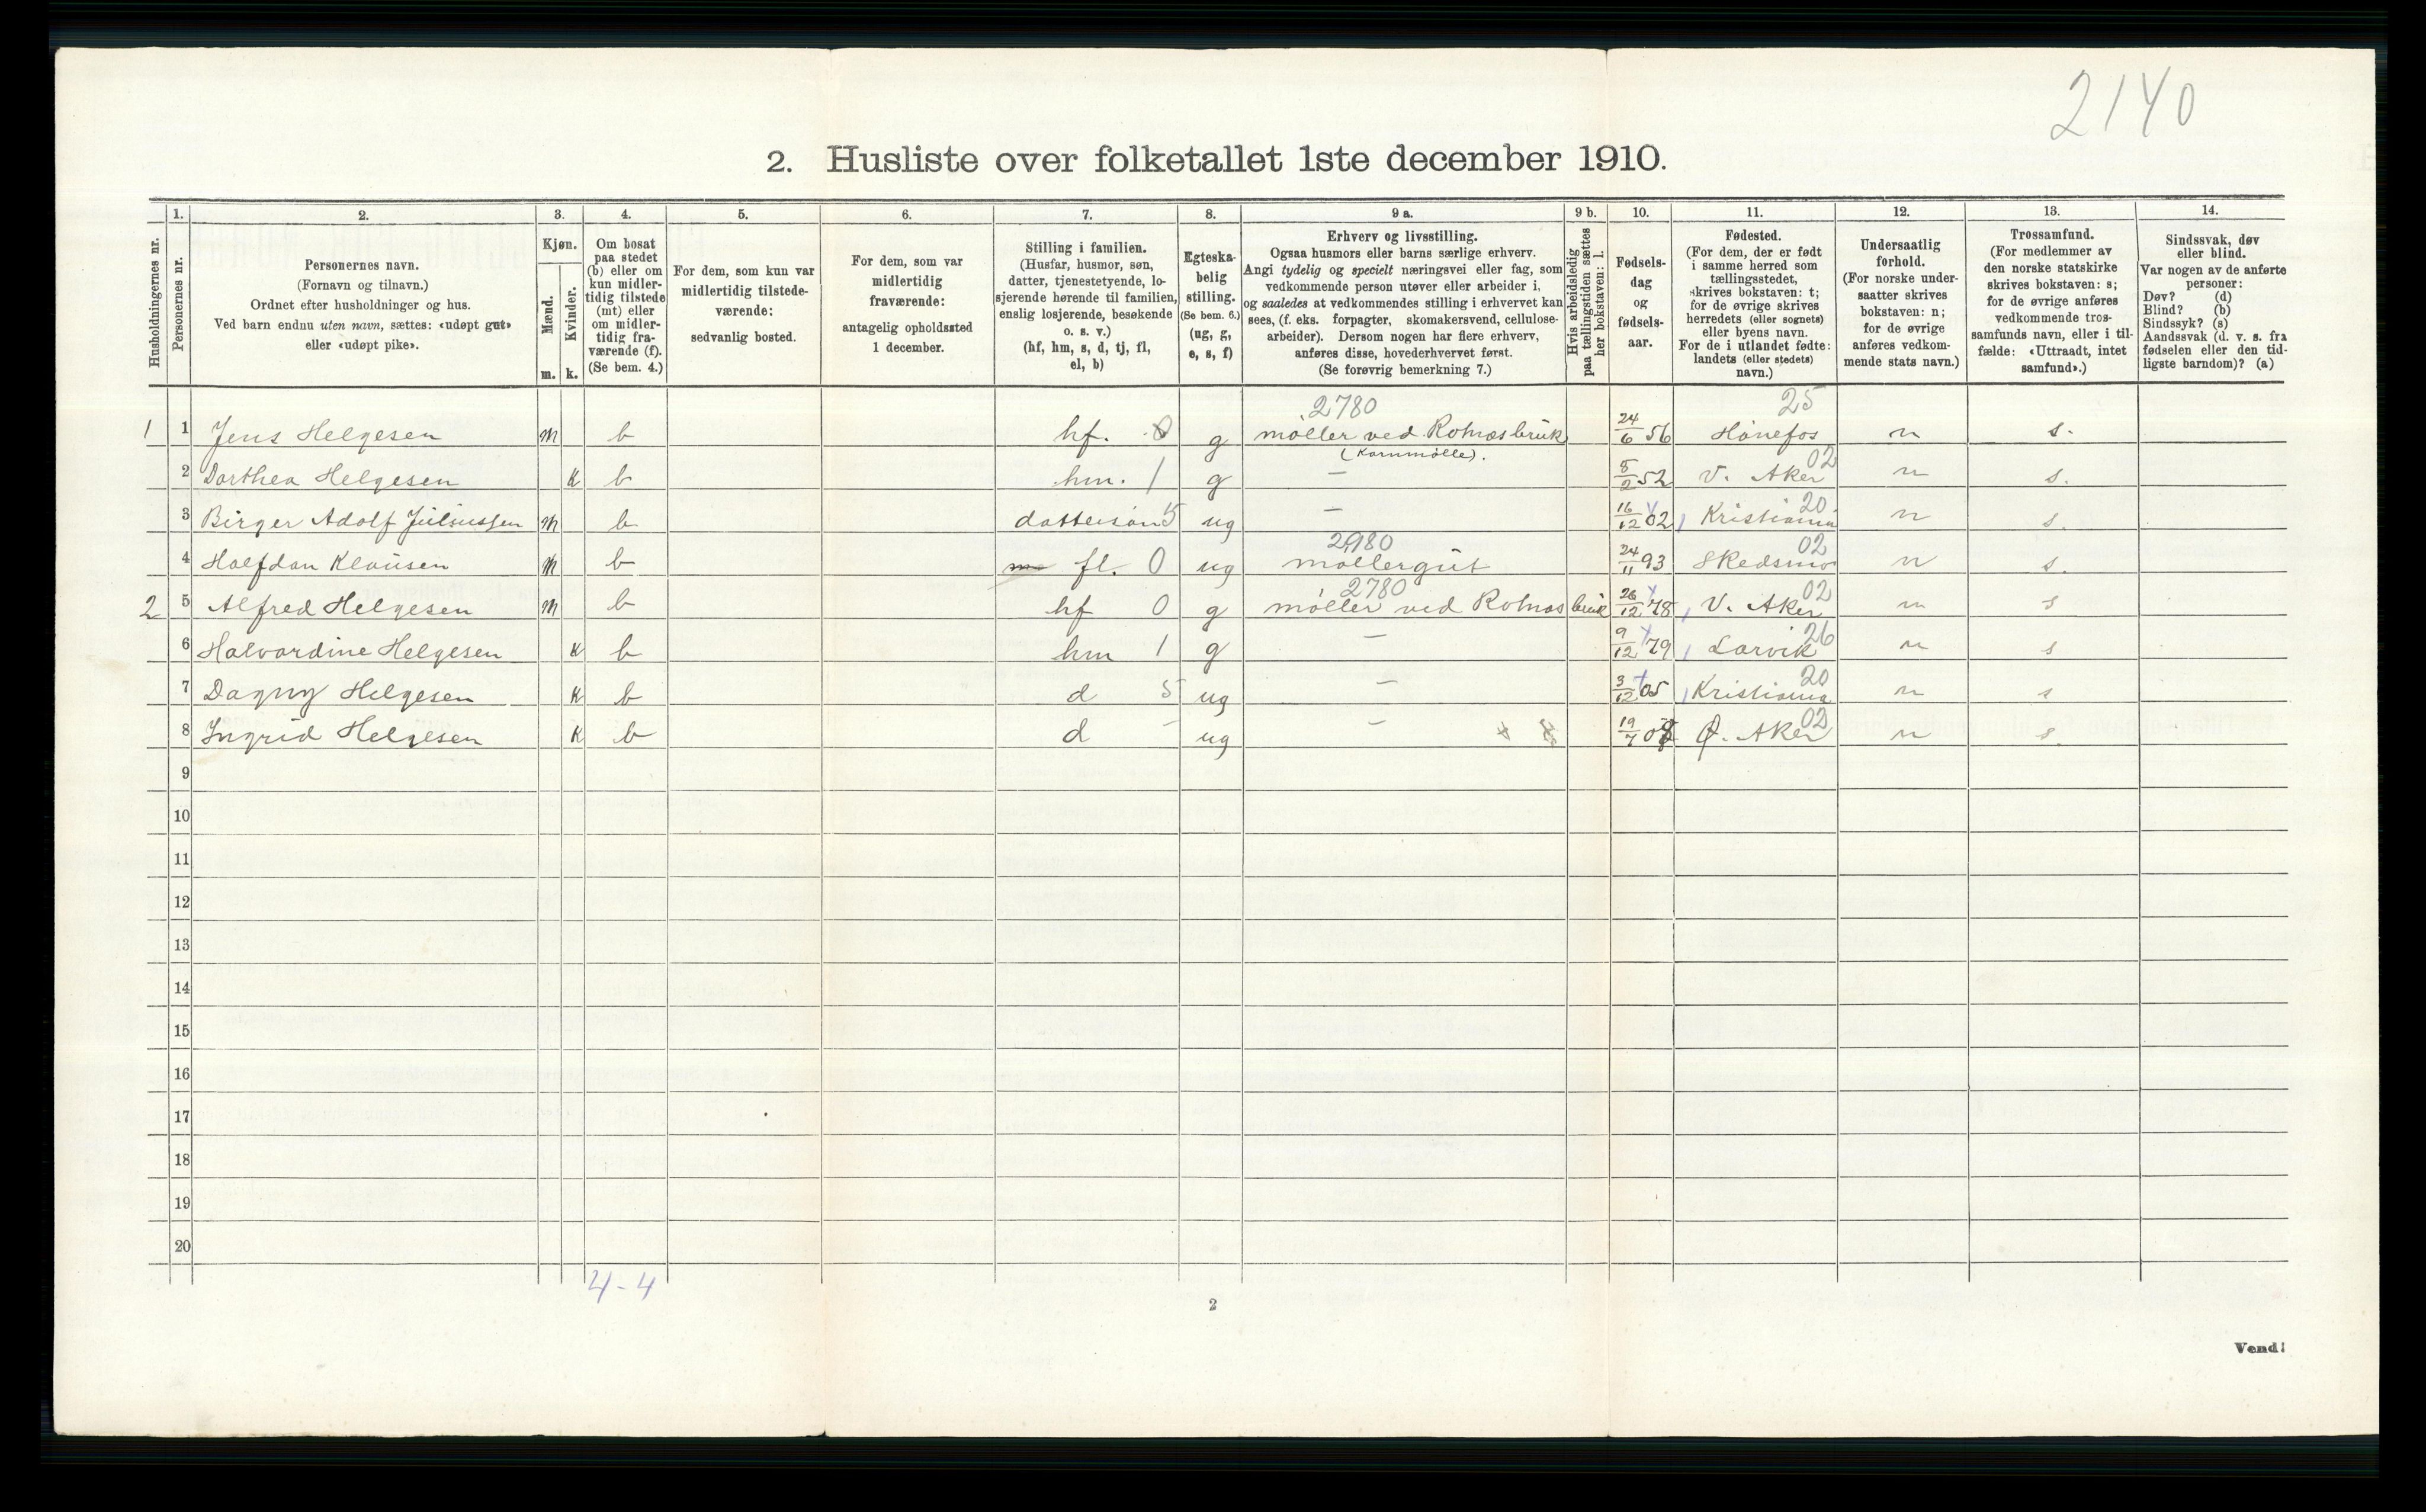 2140
2. Husliste over folketallet 1ste december 1910.
Husholdningernes nr.
1.
Personernes nr.
2.
Personernes navn.
(Fornavn og tilnavn.)
Ordnet efter husholdninger og hus.
Ved barn endnu uten navn, sættes: «udøpt gut»
eller «udøpt pike».
3.
Kjøn.
Mænd.
Kvinder.
m. k.
4.
Om bosat
paa stedet
(b) eller om
kun midler-
tidig tilstede
(mt) eller
om midler-
tidig fra-
værende (f).
(Se bem. 4.)
5.
For dem, som kun var
midlertidig tilstede-
værende:
sedvanlig bosted.
6.
For dem, som var
midlertidig
fraværende:
antagelig opholdssted
1 december.
7.
Stilling i familien.
(Husfar, husmor, søn,
datter, tjenestetyende, lo-
sjerende hørende til familien,
enslig losjerende, besøkende
o. s. v.)
(hf, hm, s, d, tj, fl,
el, b)
8.
Egteska-
belig
stilling.
(Se bem. 6.)
(ug, g,
e, s, f)
9 a.
Erhverv og livsstilling.
Ogsaa husmors eller barns særlige erhverv.
Angi tydelig og specielt næringsvei eller fag, som
vedkommende person utøver eller arbeider i,
og saaledes at vedkommendes stilling i erhvervet kan
sees, (f. eks. forpagter, skomakersvend, cellulose-
arbeider). Dersom nogen har flere erhverv,
anføres disse, hovederhvervet først.
(Se forøvrig bemerkning 7.)
9 b.
Hvis arbeidsledig
paa tællingstiden sættes
her bokstaven: l.
10.
Fødsels-
dag
og
fødsels-
aar.
11.
Fødested.
(For dem, der er født
i samme herred som
tællingsstedet,
skrives bokstaven: t;
for de øvrige skrives
herredets (eller sognets)
eller byens navn.
For de i utlandet fødte:
landets (eller stedets)
navn.)
12.
Undersaatlig
forhold.
(For norske under-
saatter skrives
bokstaven: n;
for de øvrige
anføres vedkom-
mende stats navn.)
13.
Trossamfund.
(For medlemmer av
den norske statskirke
skrives bokstaven: s;
for de øvrige anføres
vedkommende tros-
samfunds navn, eller i til-
fælde: «Uttraadt, intet
samfund».)
14.
Sindssvak, døv
eller blind.
Var nogen av de anførte
personer:
Døv? (d)
Blind? (b)
Sindssyk? (s)
Aandssvak (d. v. s. fra
fødselen eller den tid-
ligste barndom)? (a)
2780 25
1 1 Jens Helgesen m b hf. 0 g møller ved Rolnæs bruk 24/6 56 Hønefos n s.
(Kornmølle). 02
2 Dorthea Helgesen k b hm. 1 g — 5/2 52 V. Aker n s.
20
3 Birger Adolf Juliussen m b dattersøn 5 ug — 16/12 02 Kristiania n s.
2980 02
4 Halfdan Klausen m b fl. 0 ug møllergut 24/11 93 Skedsmo n s.
2780 02
2 5 Alfred Helgesen m b hf 0 g møller ved Rolnæs bruk 26/12 78 V. Aker n s
26
6 Halvardine Helgesen k b hm 1 g — 9/12 79 Larvik n s
20
7 Dagny Helgesen k b d 5 ug — 3/12 05 Kristiania n s
02
8 Ingrid Helgesen k b d - ug — 19/7 08 Ø. Aker n s.
9
10
11
12
13
14
15
16
17
18
19
20
4-4
2
Vend!